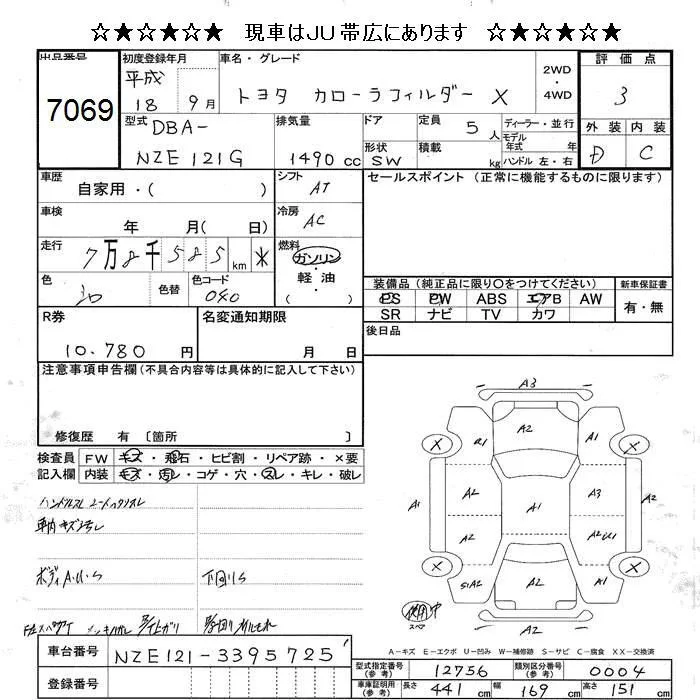 ☆★☆★☆★ 現車はJU帯広にあります ☆★☆★☆★
出品番号 7069
初度登録年月 平成 18 9月
車名・グレード トヨタ カローラフィルダー X
2WD・4WD
評価点 3
外装 D 内装 C
型式 DBA-NZE121G
排気量 1490cc
ドア
形状 SW
定員 5人
積載 kg
ディーラー・並行
モデル年式 年
ハンドル 左・右
車歴 自家用・( )
シフト AT
セールスポイント (正常に機能するものに限ります)
車検 年 月( 日)
冷房 AC
走行 7万8千585km *
燃料 ガソリン・軽油 ( )
色 色替 色コード 040
装備品 (純正品に限り〇をつけてください)
新車保証書 有・無
PS PW ABS エアB AW
SR ナビ TV カワ
R券 10.780円
名変通知期限 月 日
後日品
注意事項申告欄 (不具合内容等は具体的に記入して下さい)
修復歴 有 〔箇所 〕
検査員記入欄
FW キズ・飛石・ヒビ割・リペア跡・×要
内装 キズ・汚レ・コゲ・穴・スレ・キレ・破レ
車内キズ汚レ
ボディA.U.S
下回りS
A3
X A1 A2 A1 X
A1 A2 A1 A3 A2
A2
X S1A2 A2 A1 X
A2
使用中
スペア
A-キズ E-エクボ U-凹み W-補修跡 S-サビ C-腐食 XX-交換済
車台番号 NZE121-3395725
登録番号
型式指定番号(参考) 12756
類別区分番号(参考) 0004
車庫証明用(参考) 長さ 441cm 幅 169cm 高さ 151cm